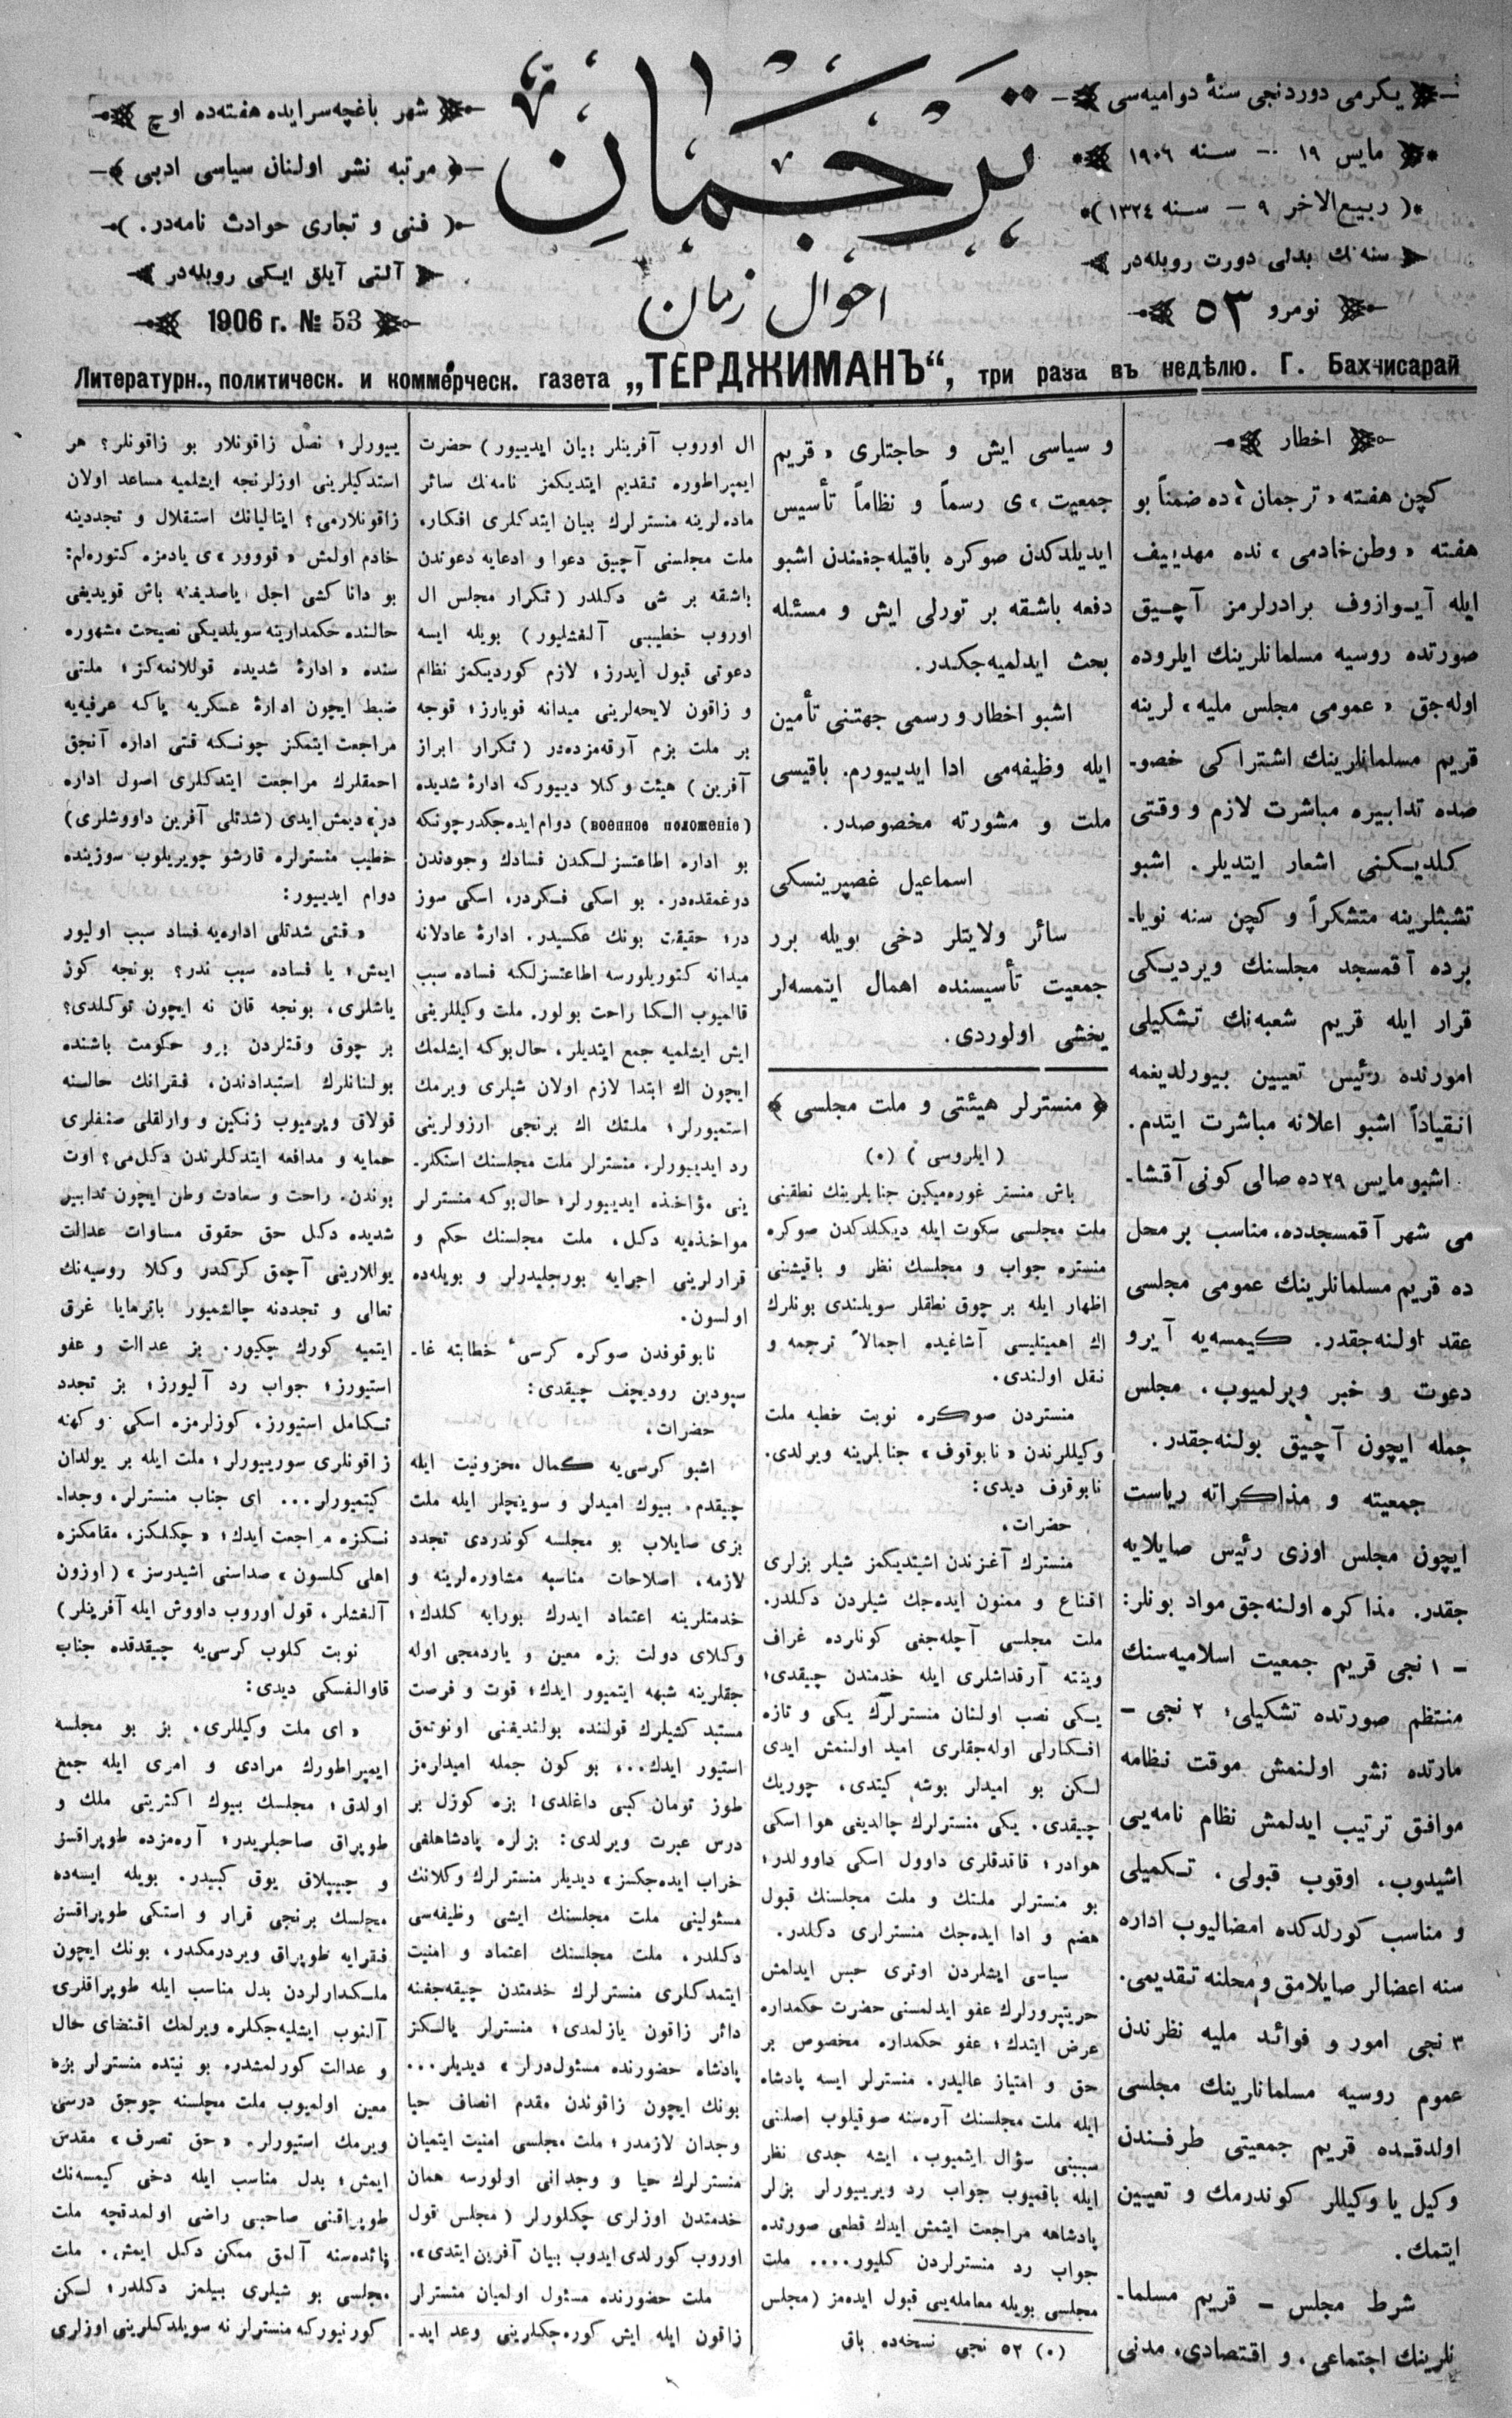 يكرمی دوردنجی سنهٔ دواميه‌سی
مايس ١٩ — سنه ١٩٠٦
(ربيع الاخر ٩ — سنه ١٣٢٤)
سنه‌نك بدلی دورت روبله‌در
نومرو ٥٣
ترجمان
احوال زمان
شهر باغچه‌سرايده هفته‌ده اوچ
مرتبه نشر اولنان سياسی ادبی
(فنی و تجاری حوادث نامه‌در.)
آلتی آيلق ايكی روبله‌در
1906 г. № 53
Литературн., политическ. и коммерческ. газета „ТЕРДЖИМАНЪ“, три раза въ недѣлю. Г. Бахчисарай
اخطار
كچن هفته «ترجمان» ده ضمناً بو
هفته «وطن خادمی» نده مهدييف
ايله آيوازوف برادرلرمز آچيق
صورتده روسيه مسلمانلرينك ايلروده
اوله‌جق «عمومی مجلس مليه» لرينه
قريم مسلمانلرينك اشتراكی خصو-
صده تدابيره مباشرت لازم و وقتی
كلديكنی اشعار ايتديلر. اشبو
تشبثلرينه متشكراً و كچن سنه نويا-
برده آقمسجد مجلسنك ويرديكی
قرار ايله قريم شعبه‌نك تشكيلی
امورنده رئيس تعيين بيورلديغمه
انقياداً اشبو اعلانه مباشرت ايتدم.
اشبو مايس ٢٩ ده صالی كونی آقشا-
می شهر آقمسجدده، مناسب بر محل
ده قريم مسلمانلرينك عمومی مجلسی
عقد اولنه‌جقدر. كيمسه‌يه آيرو
دعوت و خبر ويرلميوب، مجلس
جمله ايچون آچيق بولنه‌جقدر.
جمعيته و مذاكراته رياست
ايچون مجلس اوزی رئيس صايلايه
جقدر. مذاكره اولنه‌جق مواد بونلر:
— ١ نجی قريم جمعيت اسلاميه‌سنك
منتظم صورتده تشكيلی؛ ٢ نجی —
مارتده نشر اولنمش موقت نظامه
موافق ترتيب ايدلمش نظام نامه‌يی
اشيدوب، اوقوب قبولی، تكميلی
و مناسب كورلدكده امضاليوب اداره
سنه اعضالر صايلامق و محلنه تقديمی.
٣ نجی امور و فوائد مليه نظرندن
عموم روسيه مسلمانارينك مجلسی
اولدقده قريم جمعيتی طرفندن
وكيل يا وكيللر كوندرمك و تعيين
ايتمك.
شرط مجلس — قريم مسلما-
نلرينك اجتماعی، و اقتصادی، مدنی
و سياسی ايش و حاجتلری «قريم
جمعيت» ی رسماً و نظاماً تأسيس
ايديلدكدن صوكره باقيله‌جغندن اشبو
دفعه باشقه بر تورلی ايش و مسئله
بحث ايدلميه‌جكدر.
اشبو اخطار و رسمی جهتنی تأمين
ايله وظيفه‌می ادا ايدييورم. باقيسی
ملت و مشورته مخصوصدر.
اسماعيل غصپرينسكی
سائر ولايتلر دخی بويله برر
جمعيت تأسيسنده اهمال ايتمسه‌لر
يخشی اولوردی.
﴿ منسترلر هيئتی و ملت مجلسی ﴾
(ايلروسی) (٠)
باش منستر غوره‌ميكين جنابلرينك نطقينی
ملت مجلسی سكوت ايله ديكلدكدن صوكره
منستره جواب و مجلسك نظر و باقيشنی
اظهار ايله بر چوق نطقلر سويلندی بونلرك
اك اهميتليسی آشاغيده اجمالاً ترجمه و
نقل اولندی.
منستردن صوكره نوبت خطبه ملت
وكيللرندن «نابوقوف» جنابلرينه ويرلدی.
نابوقوف ديدی:
حضرات،
منسترك آغزندن اشيتديكمز شيلر بزلری
اقناع و ممنون ايده‌جك شيلردن دكلدر.
ملت مجلسی آچله‌جغی كونلرده غراف
ويتته آرقداشلری ايله خدمندن چيقدی؛
يكی نصب اولنان منسترلرك يكی و تازه
افكارلی اوله‌جقلری اميد اولنمش ايدی
لكن بو اميدلر بوشه كيتدی، چوريك
چيقدی. يكی منسترلرك چالديغی هوا اسكی
هوادر؛ قاقدقلری داوول اسكی داوولدر؛
بو منسترلر ملتك و ملت مجلسنك قبول
هضم و ادا ايده‌جك منسترلری دكلدر.
سياسی ايشلردن اوتری حبس ايدلمش
حريتپرورلرك عفو ايدلمسنی حضرت حكمداره
عرض ايتدك؛ عفو حكمداره مخصوص بر
حق و امتياز عاليدر. منسترلر ايسه پادشاه
ايله ملت مجلسنك آره‌سنه صوقيلوب اصلنی
سببنی سؤال ايتميوب، ايشه جدی نظر
ايله باقميوب جواب رد ويرييورلر بزلر
پادشاهه مراجعت ايتمش ايدك قطعی صورتده
جواب رد منسترلردن كليور.... ملت
مجلسی بويله معامله‌يی قبول ايده‌مز (مجلس
(٠) ٥٢ نجی نسخه‌ده باق
ال اوروب آفرينلر بيان ايدييور) حضرت
ايمپراطوره تقديم ايتديكمز نامه‌نك سائر
ماده‌لرينه منسترلرك بيان ايتدكلری افكاره
ملت مجلسنی آچيق دعوا و ادعايه دعوندن
باشقه بر شی دكلدر (تكرار مجلس ال
اوروب خطيبی آلقشليور) بويله ايسه
دعوتی قبول ايدرز؛ لازم كورديكمز نظام
و زاقون لايحه‌لرينی ميدانه قويارز؛ قوجه
بر ملت بزم آرقه‌مزده‌در (تكرار ابراز
آفرين) هيئت وكلا ديييوركه ادارهٔ شديده
(военное положеніе) دوام ايده‌جكدر چونكه
بو اداره اطاعتسزلكدن فسادك وجودندن
درغمقده‌در. بو اسكی فكردر، اسكی سوز
در؛ حقيقت بونك عكسيدر. ادارهٔ عادلانه
ميدانه كتوريلورسه اطاعتسزلكه فساده سبب
قالميوب الكا راحت بولور. ملت وكيللرينی
ايش ايشلميه جمع ايتديلر، حال بوكه ايشلمك
ايچون اك ابتدا لازم اولان شيلری ويرمك
استميورلر؛ ملتك اك برنجی ارزولرينی
رد ايدييورلر. منسترلر ملت مجلسنك استكلر-
ينی مؤاخذه ايدييورلر؛ حال بوكه منسترلر
مواخذه‌يه دكل، ملت مجلسنك حكم و
قرارلرينی اجرايه بورجليدرلر و بويله‌ده
اولسون.
نابوقوفدن صوكره كرسیٔ خطابته غا-
سپودين روديچف چيقدی:
حضرات،
اشبو كرسی‌يه كمال محزونيت ايله
چيقدم. بيوك اميدلر و سوينچلر ايله ملت
بزی صايلاب بو مجلسه كوندردی تجدد
لازمه، اصلاحات مناسبه مشاوره‌لرينه و
خدمتلرينه اعتماد ايدرك بورايه كلدك؛
وكلای دولت بزه معين و ياردمجی اوله
جقلرينه شبهه ايتميور ايدك؛ قوت و فرصت
مستبد كشيلرك قولنده بولنديغنی اونوتمق
استيور ايدك... بو كون جمله اميدلرمز
طوز تومان كبی داغلدی! بزه كوزل بر
درس عبرت ويرلدی: بزلره پادشاهلغی
خراب ايده‌جكسز» ديديلر منسترلرك وكلانك
مسئولينی ملت مجلسنك ايشی وظيفه‌سی
دكلدر، ملت مجلسنك اعتماد و امنيت
ايتمدكلری منسترلرك خدمتدن چيقه‌جغنه
دائر زاقون يازلمدی؛ منسترلر يالكز
پادشاه حضورنده مسئولدرلر» ديديلر...
بونك ايچون زاقوندن مقدم انصاف حيا
وجدان لازمدر؛ ملت مجلسی امنيت ايتميان
منسترلرك حيا و وجدانی اولورسه همان
خدمتدن اوزلری چكلورلر (مجلس قول
اوروب كورلدی ايدوب بيان آفرين ايتدی».
ملت حضورنده مسئول اولميان منسترلر
زاقون ايله ايش كوره‌جكلرينی وعد ايد-
ييورلر؛ نصل زاقونلار بو زاقونلر؟ هر
استدكيلرينی اوزلرنجه ايشلميه مساعد اولان
زاقونلارمی؟ ايتاليانك استقلال و تجددينه
خادم اولمش «قووور» ی يادمزه كتوره‌لم:
بو دانا كشی اجل ياصديغنه باش قويديغی
حالنده حكمدارينه سويلديكی نصيحت مشهوره
سنده «ادارهٔ شديده قوللانمه‌كز؛ ملتی
ضبط ايچون ادارهٔ عسكريه ياكه عرفيه‌يه
مراجعت ايتمكز چونكه قتی اداره آنجق
احمقلرك مراجعت ايتدكلری اصول اداره
در» ديمش ايدی (شدتلی آفرين داووشلری)
خطيب منسترلره قارشو چويريلوب سوزينده
دوام ايدييور:
«قتی شدتلی اداره‌يه فساد سبب اوليور
ايمش؛ يا فساده سبب ندر؟ بونجه كوز
ياشلری، بونجه قان نه ايچون توكلدی؟
بر چوق وقتلردن برو حكومت باشنده
بولنانلرك استبدادندن، فقرانك حالنه
قولاق ويرميوب زنكين و وارلقلی صنفلری
حمايه و مدافعه ايتدكلرندن دكلمی؟ اوت
بوندن. راحت و سعادت وطن ايچون تدابير
شديده دكل حق حقوق مساوات عدالت
يوللارينی آچمق كركدر وكلا روسيه‌نك
تعالی و تجددنه چالشميور باترمايا غرق
ايتميه كورك چكيور. بز عدالت و عفو
استيورز؛ جواب رد آليورز؛ بز تجدد
تكامل استيورز، كوزلرمزه اسكی و كهنه
زاقونلری سورييورلر؛ ملت ايله بر يولدان
كيتميورلر... ای جناب منسترلر، وجدا-
نكزه مراجعت ايدك؛ «چكلكز، مقامكزه
اهلی كلسون» صداسنی اشيدرسز» (اوزون
آلقشلر، قول اوروب داووش ايله آفرينلر)
نوبت كلوب كرسی‌يه چيقدقده جناب
قاوالفسكی ديدی:
«ای ملت وكيللری، بز بو مجلسه
ايمپراطورك مرادی و امری ايله جمع
اولدق؛ مجلسك بيوك اكثريتی ملك و
طوپراق صاحبلريدر؛ آره‌مزده طوپراقسز
و چيپلاق يوق كبيدر. بويله ايسه‌ده
مجلسك برنجی قرار و استكی طوپراقسز
فقرايه طوپراق ويردرمكدر، بونك ايچون
ملكدارلردن بدل مناسب ايله طوپراقلری
آلنوب ايشليه‌جكلره ويرلمك اقتضای حال
و عدالت كورلمشدر. بو نيتده منسترلر بزه
معين اولميوب ملت مجلسنه چوجق درسی
ويرمك استيورلر. «حق تصرف» مقدس
ايمش؛ بدل مناسب ايله دخی كيمسه‌نك
طوپراقنی صاحبی راضی اولمدقچه ملت
فائده‌سنه آلمق ممكن دكل ايمش. ملت
مجلسی بو شيلری بيلمز دكلدر؛ لكن
كورنيوركه منسترلر نه سويلدكلرينی اوزلری